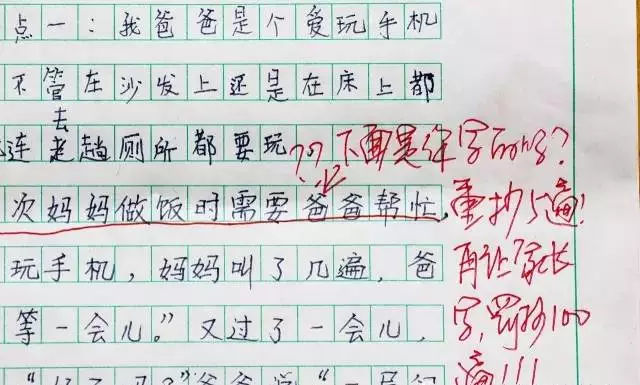 点一：我爸爸是个爱玩手机
不管在沙发上还是在床上都
连去趟厕所都要玩
??下面是谁写的字?
次妈妈做饭时需要爸爸帮忙，
重抄5遍!
玩手机，妈妈叫了几遍，爸
再让家长
等一会儿。”又过了一会儿，
字，罚抄100
遍!!!